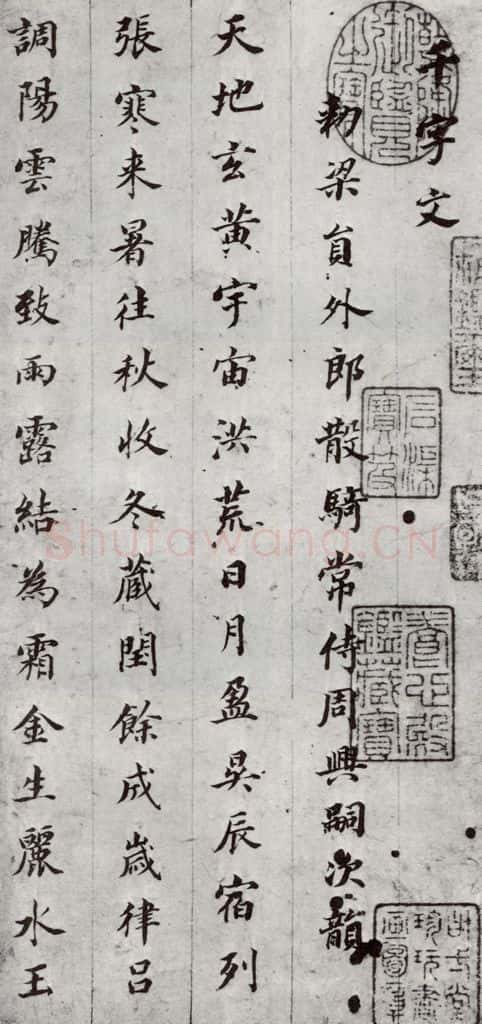 千字文
勅梁貟外郎散騎常侍周興嗣次韻
天地玄黄宇宙洪荒日月盈昃辰宿列
張寒来暑往秋收冬藏閏餘成歲律呂
調陽雲騰致雨露結為霜金生麗水王
石渠寶笈
養心殿鑑藏寶
Shufawang.CN